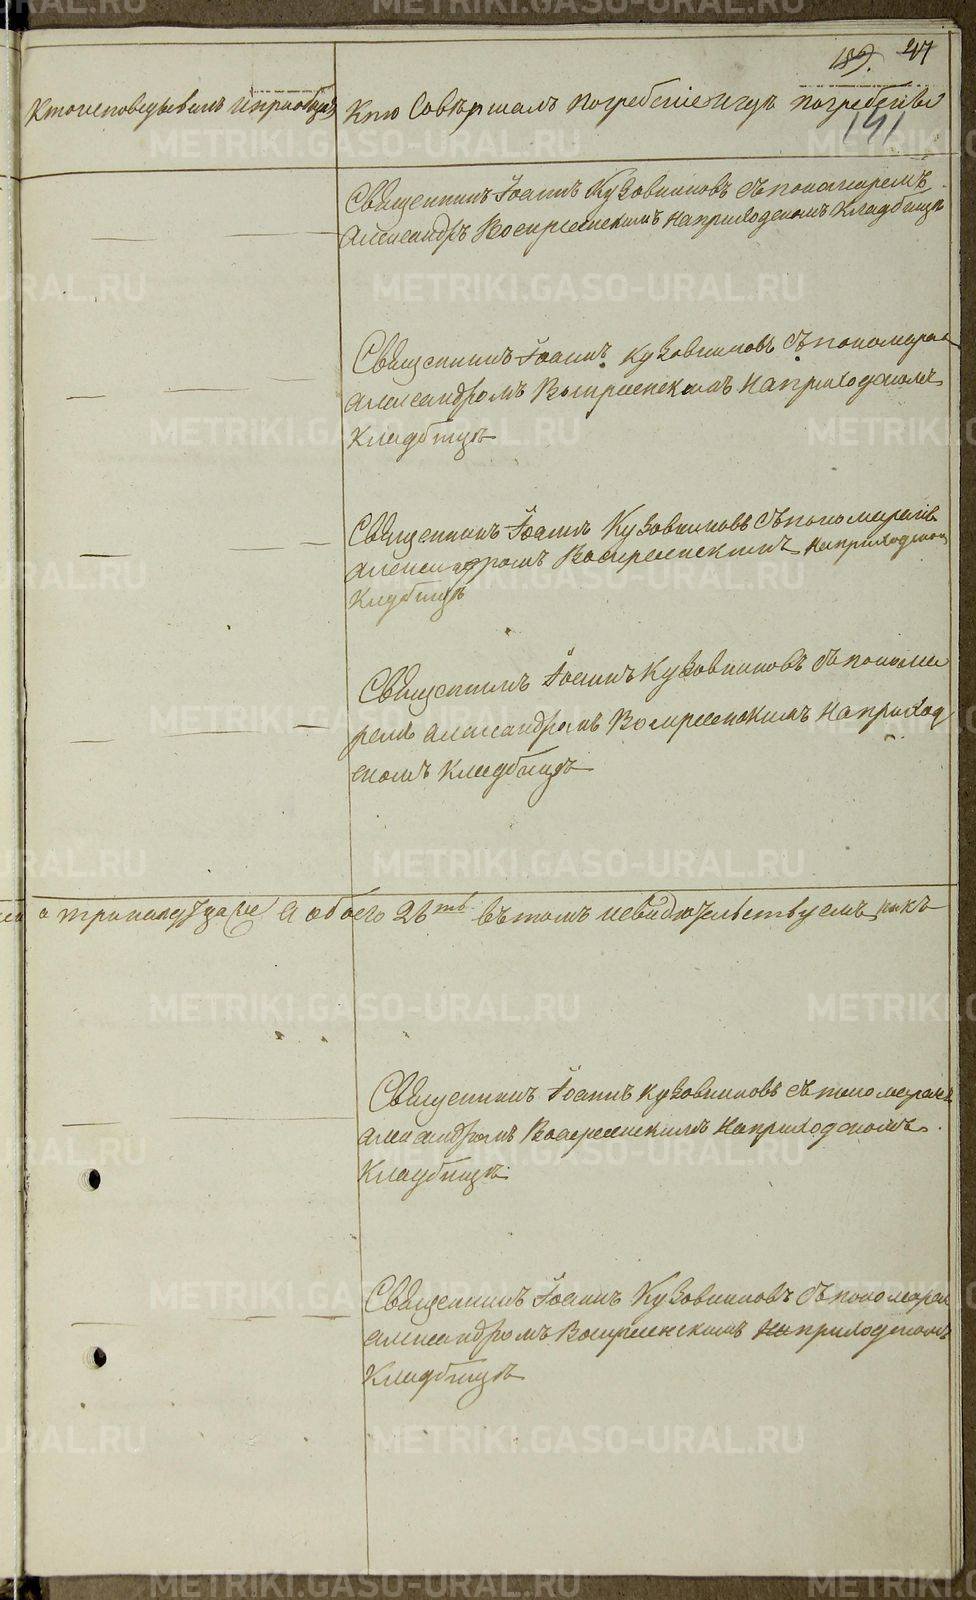 189. 47
Кто исповѣдывалъ и пріобщалъ
Кто совѣршалъ погребеніе и гдѣ погребены
141
Священникъ Іоаннъ Кузовниковъ съ пономаремъ
Александръ Воскресенскимъ на приходскомъ кладбищѣ
Священникъ Іоаннъ Кузовниковъ съ пономаремъ
Александромъ Воскресенскимъ на приходскомъ
кладбищѣ
Священникъ Іоаннъ Кузовниковъ съ пономаремъ
Александромъ Воскресенскимъ на приходском
кладбищѣ
Священникъ Іоаннъ Кузовниковъ съ понома
ремъ Александромъ Воскресенскимъ на приход
скомъ кладбищѣ
а обоего 26ть въ томъ и свидѣтельствуемъ
Священникъ Іоаннъ Кузовниковъ съ пономаремъ
Александромъ Воскресенскимъ на приходскомъ
кладбищѣ
Священникъ Іоаннъ Кузовниковъ съ пономарем
Александромъ Воскресенскимъ на приходскомъ
кладбищѣ
METRIKI.GASO-URAL.RU